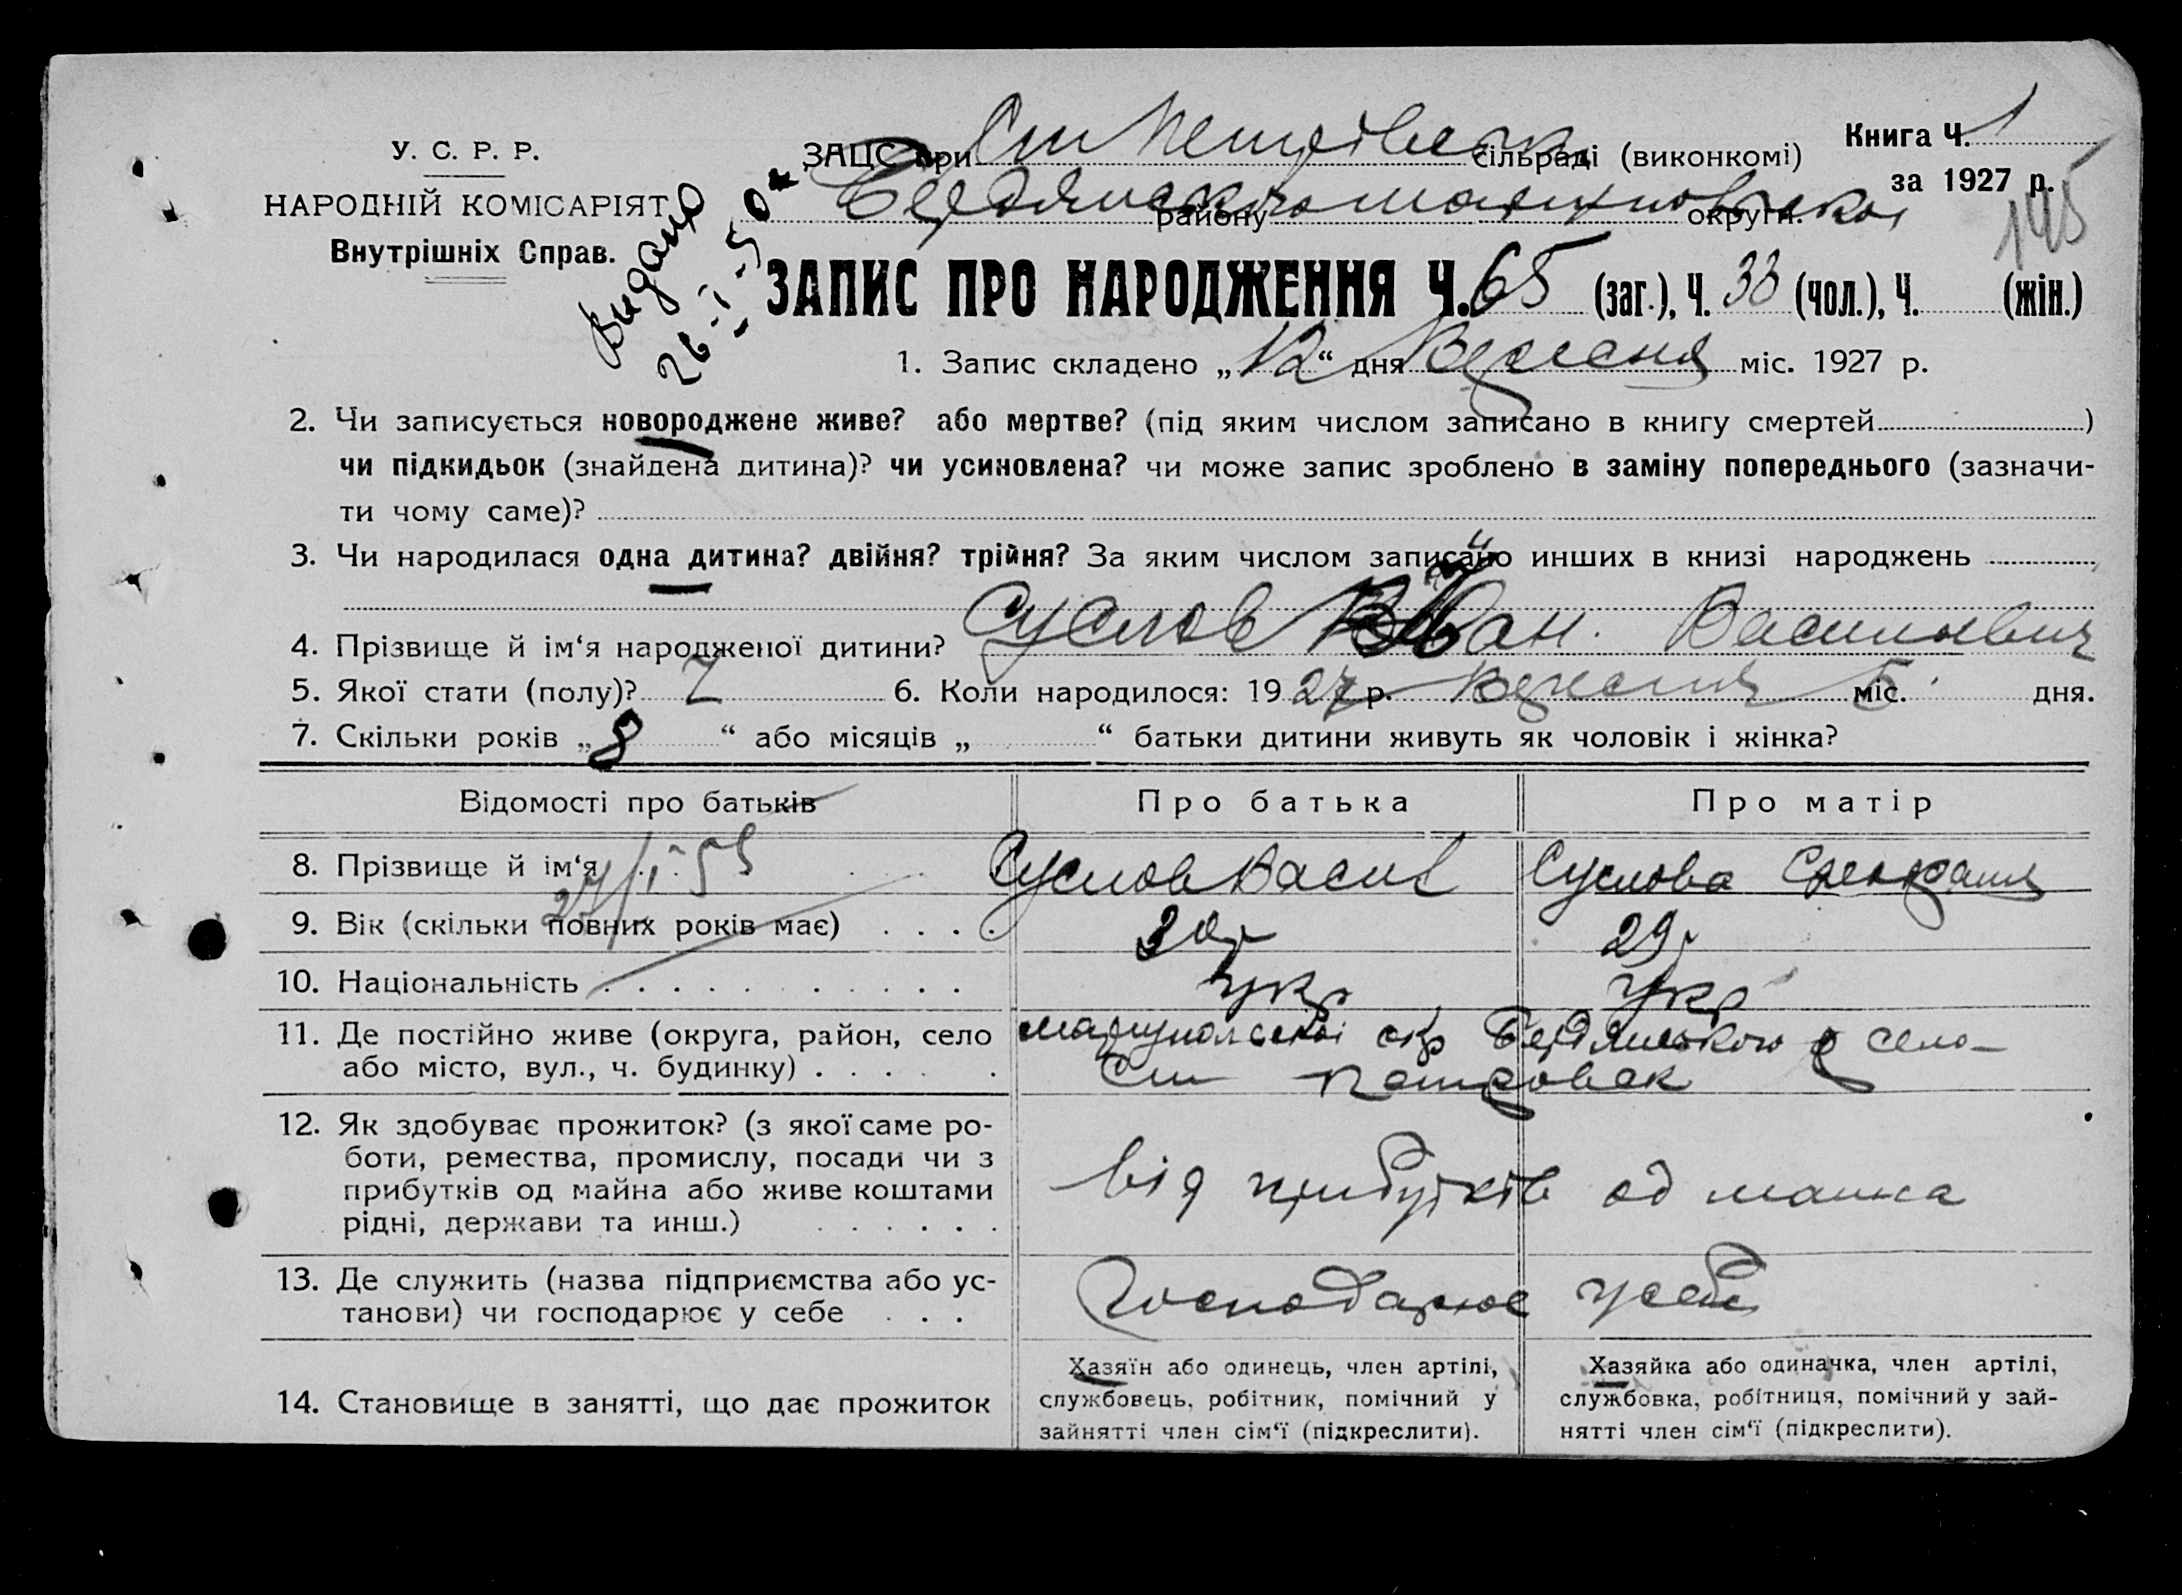 У. С. Р. Р.
НАРОДНІЙ КОМІСАРІЯТ
Внутрішніх Справ.
Видано
26-I-50
ЗАЦС при Ст Петрівськ сільраді (виконкомі)
Бердянського району Маріупольської округи.
Книга Ч. 1
за 1927 р.
145
ЗАПИС ПРО НАРОДЖЕННЯ Ч. 65 (заг.), Ч. 33 (чол.), Ч. (жін.)
1. Запис складено „12“ дня Вересня міс. 1927 р.
2. Чи записується новороджене живе? або мертве? (під яким числом записано в книгу смертей )
чи підкидьок (знайдена дитина)? чи усиновлена? чи може запис зроблено в заміну попереднього (зазначи-
ти чому саме)?
3. Чи народилася одна дитина? двійня? трійня? За яким числом записано инших в книзі народжень
4. Прізвище й ім‘я народженої дитини? Суслов Іван. Васильович
5. Якої стати (полу)? Ч 6. Коли народилося: 1927 р. Вересня міс. 5 дня.
7. Скільки років „8“ або місяців „ “ батьки дитини живуть як чоловік і жінка?
Відомості про батьків Про батька Про матір
8. Прізвище й ім‘я Суслов Васил Суслова
27/I-55
9. Вік (скільки повних років має) 30 р 29 р
10. Національність Укр Укр
11. Де постійно живе (округа, район, село маріупольської окр Бердянського р село
або місто, вул., ч. будинку) Ст Петровськ
12. Як здобуває прожиток? (з якої саме ро-
боти, ремества, промислу, посади чи з
прибутків од майна або живе коштами
рідні, держави та инш.) від прибутків од майна
13. Де служить (назва підприємства або ус-
танови) чи господарює у себе Господарює у себе
14. Становище в занятті, що дає прожиток
Хазяїн або одинець, член артілі,
службовець, робітник, помічний у
зайнятті член сім‘ї (підкреслити).
Хазяйка або одиначка, член артілі,
службовка, робітниця, помічний у зай-
нятті член сім‘ї (підкреслити).